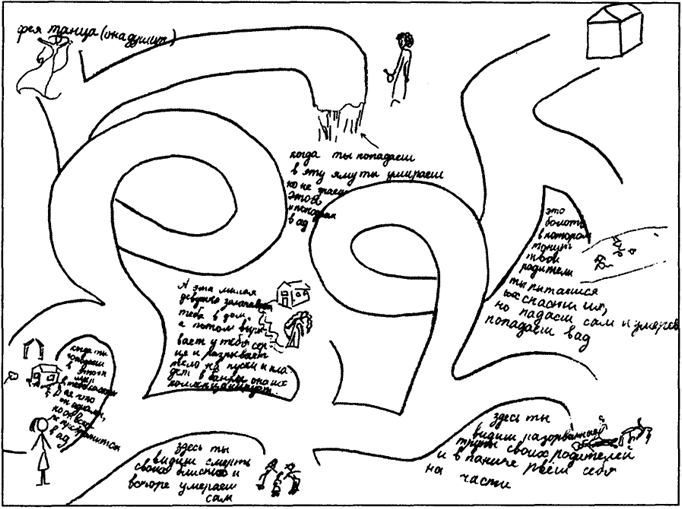 фея танца (она душит)
когда ты попадаеш
в эту яму ты умираеш
но не знаеш
этого
и попадаеш
в ад
это
болото
в котором
тонут
твои
родители
ты питаешся
спасти их,
но падаеш сам и умираеш
попадаеш в ад
А эта милая
девушка заманивает
тебя в дом.
а потом выры-
вает у тебя сер
це и разрывает
тело на куски и кла
дет в банки она их
коллекционирует.
когда ты
попадаеш
в этот
мир
в ад
здесь ты
видиш смерть
своих близких и
вскоре умераеш
сам
здесь ты
видиш разорванные
трупы своих родителей
и в панике рвеш себя
на части